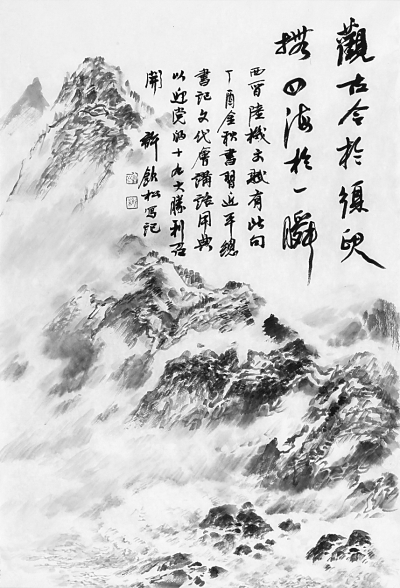 觀古今於須臾
撫四海於一瞬
西晉陸機文賦有此句
丁酉金秋書習近平總
書記文代會講話用典
以迎党的十九大勝利召
開
許欽松写記